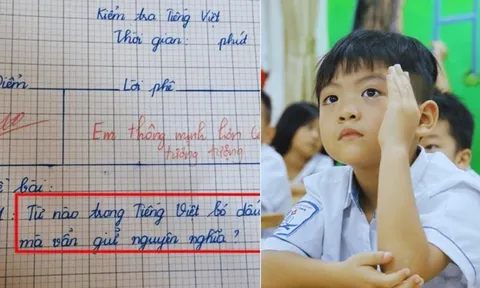 Kiểm tra Tiếng Việt
Thời gian: phút
Điểm
Lời phê
Em thông minh hơn
tưởng tượng
bài:
Từ nào trong Tiếng Việt bỏ dấu
mà vẫn giữ nguyên nghĩa?